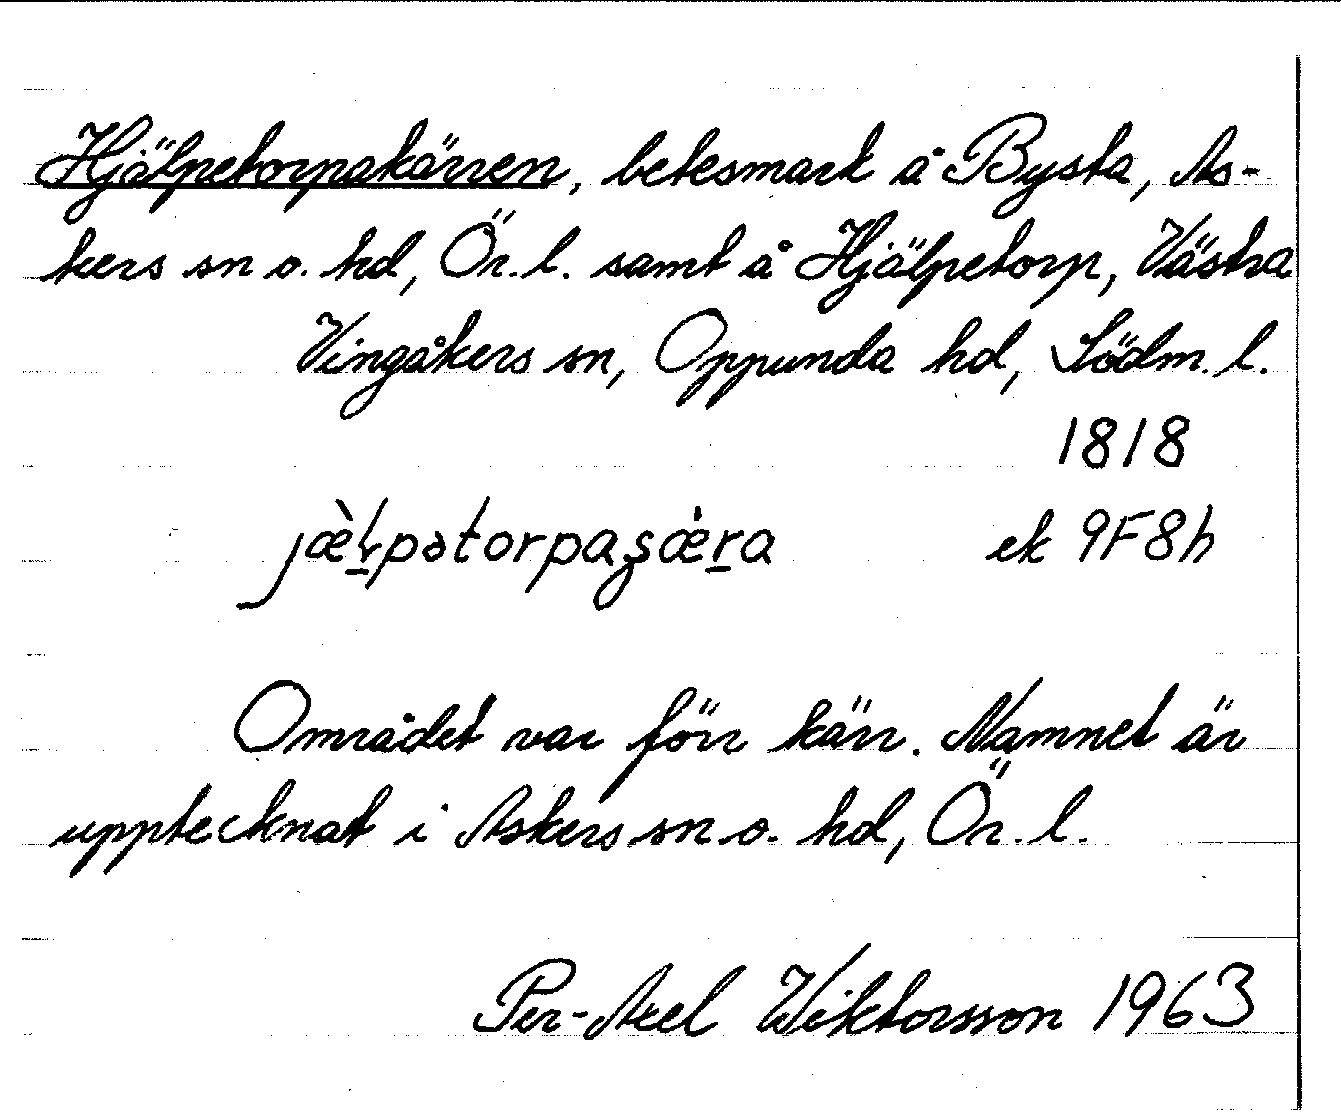 Hjälpetorpakärren, betesmark å Bysta, As-
kers sn o. hd, Ör. l. samt å Hjälpetorp, Västra
Vingåkers sn, Oppunda hd, Södm. l.
1818
ek 9F8h
Området var förr kärr. Namnet är
upptecknat i Askers sn o. hd, Ör. l.
Per-Axel Wiktorsson 1963